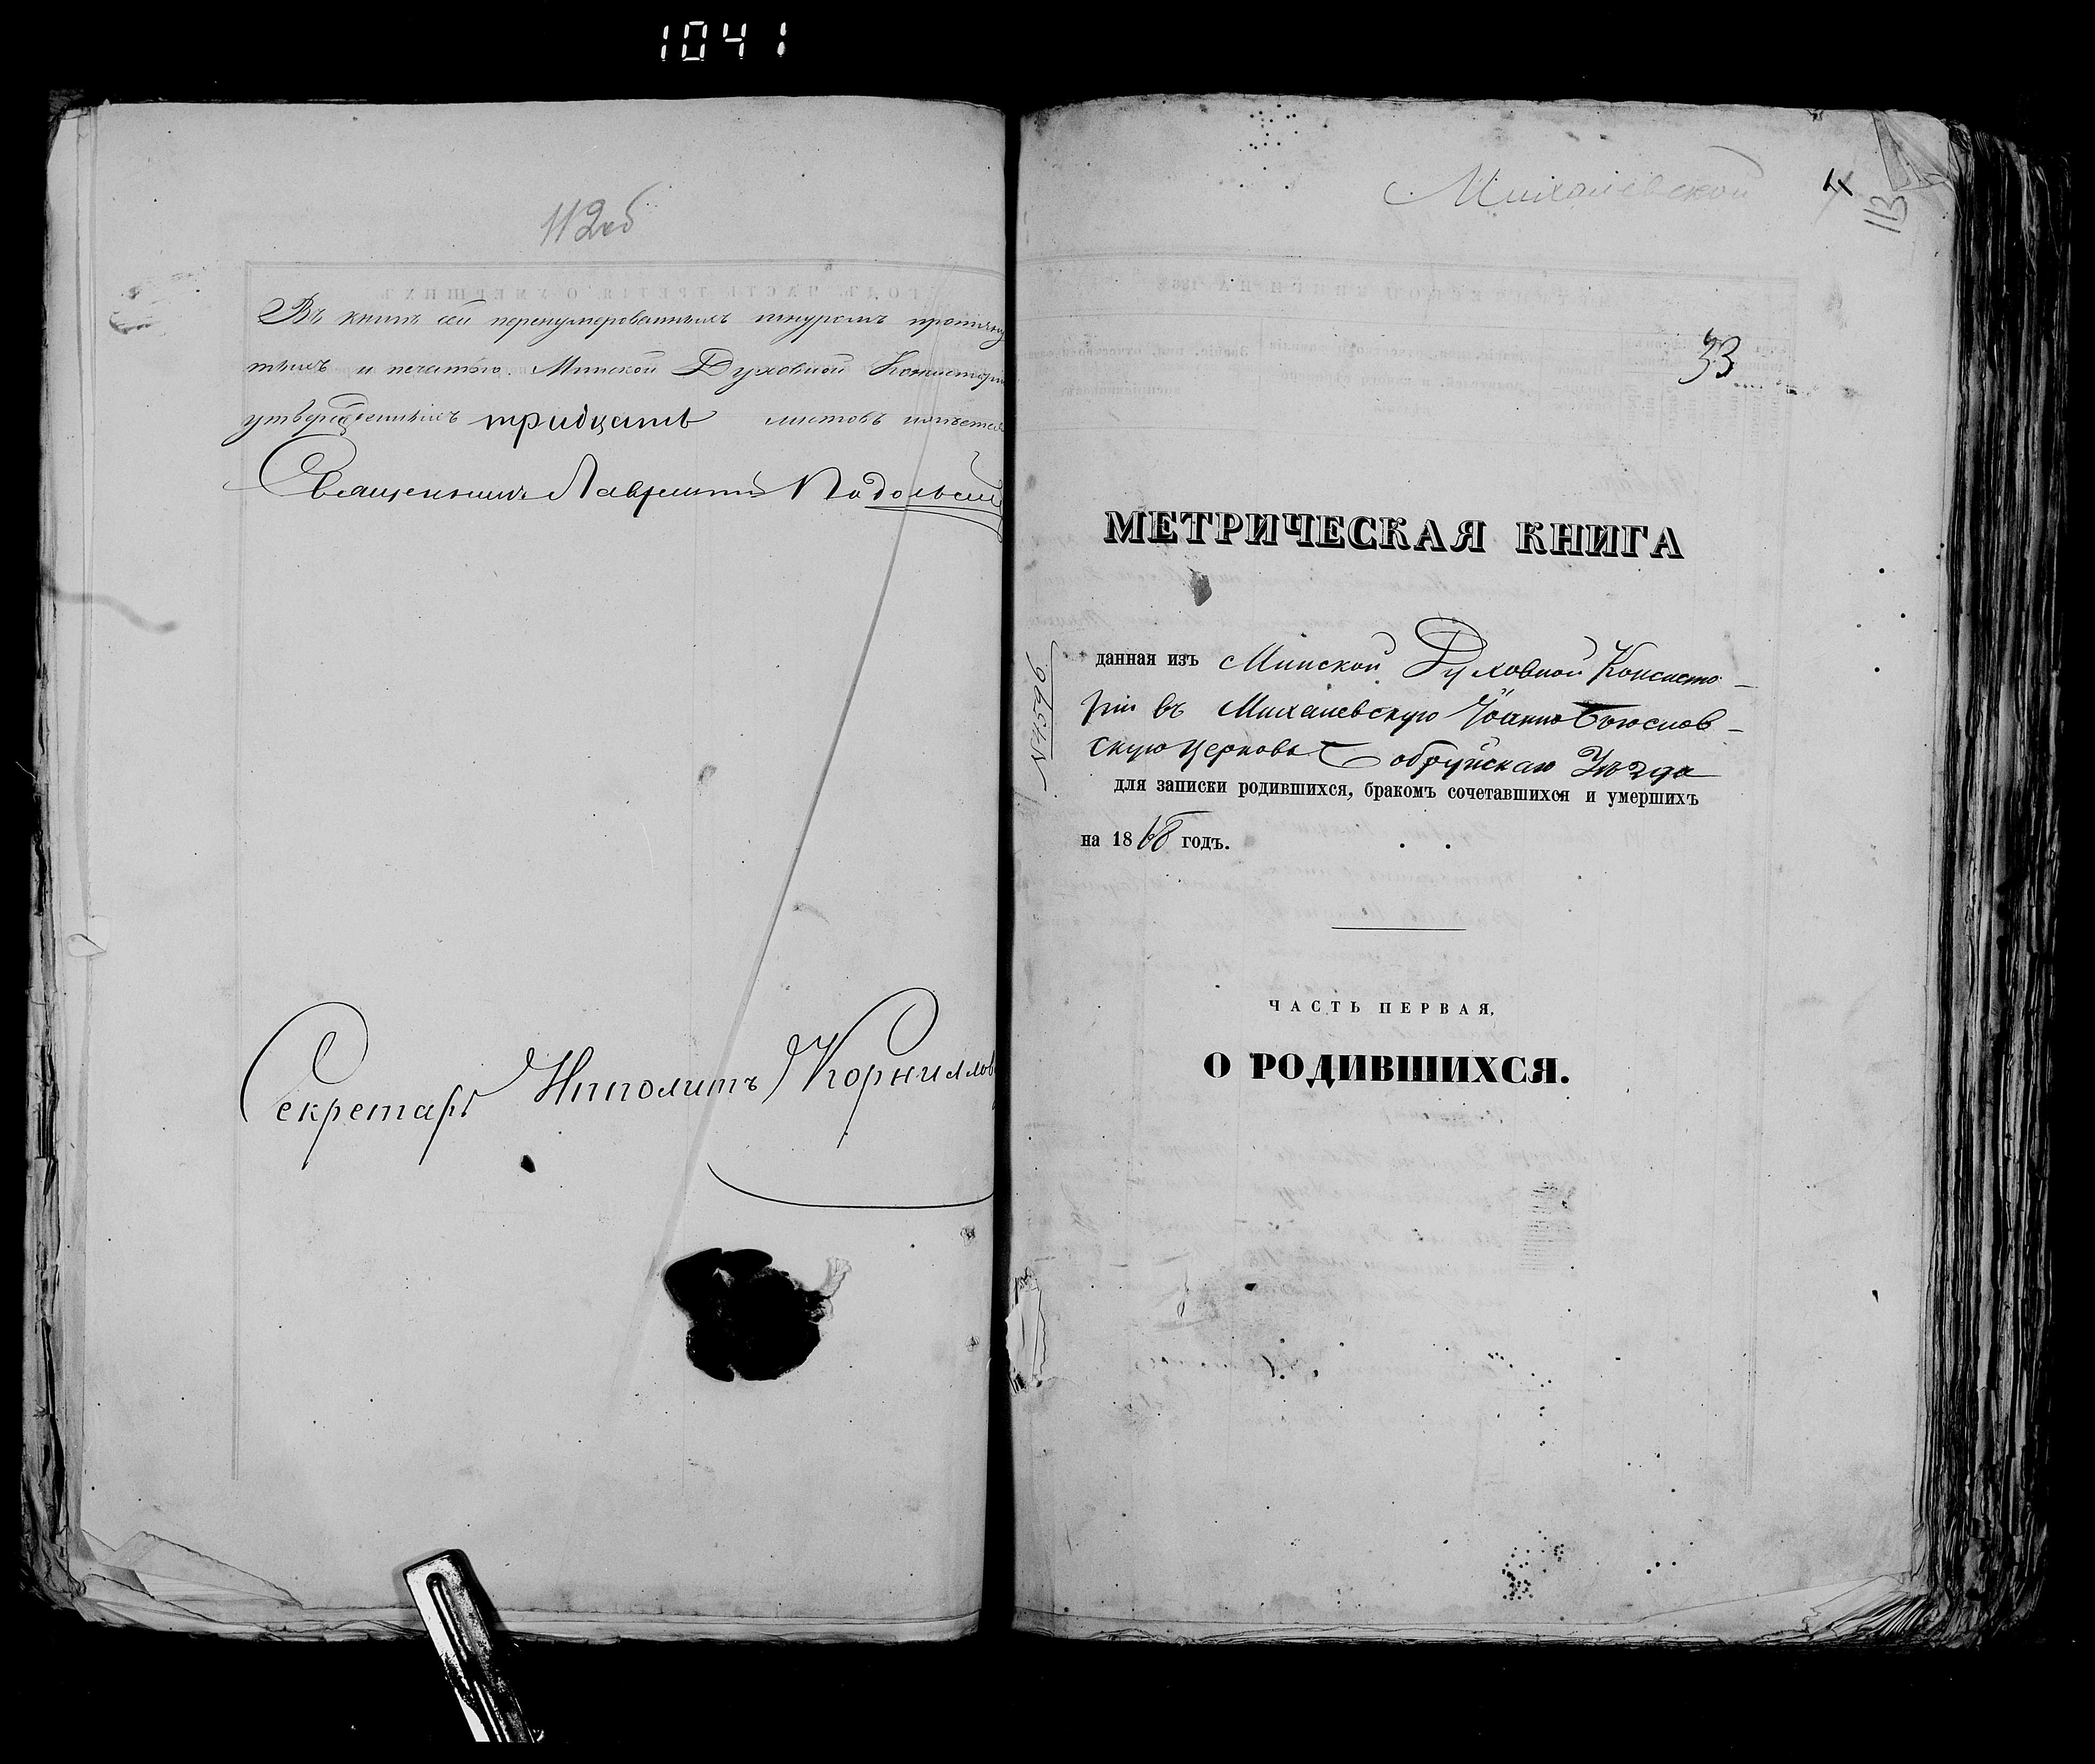 1041
112об
Въ книгѣ сей перенумерованныхъ шнуромъ протяну
тыхъ и печатью Минской Духовной Консисторіи
утвержденныхъ тридцать листовъ имѣется
Священникъ Лаврентій Подольскій
Секретарь Ипполитъ Корнилов
Михалевской
113
33
МЕТРИЧЕСКАЯ КНИГА
№ 4596
данная изъ Минской Духовной Консисто-
ріи въ Михалевскую Іоанно Богослов-
скую церковь Бобруйскаго Уѣзда
для записки родившихся, бракомъ сочетавшихся и умершихъ
на 1868 годъ.
ЧАСТЬ ПЕРВАЯ,
О РОДИВШИХСЯ.